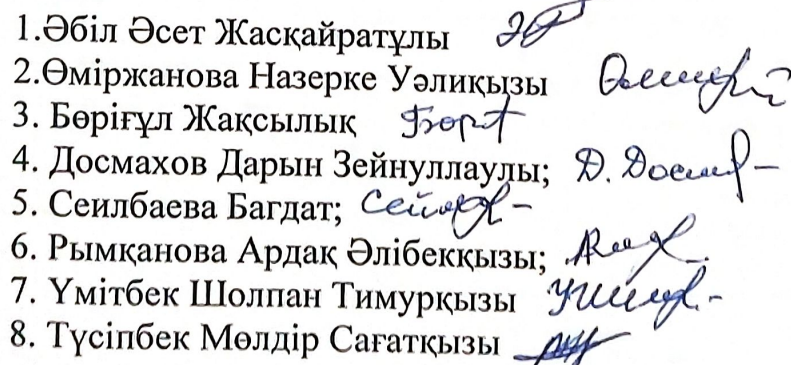 1.Әбіл Әсет Жасқайратұлы
2.Өміржанова Назерке Уәлиқызы
3. Бөріғұл Жақсылық
4. Досмахов Дарын Зейнуллаулы; Д. Досм
5. Сеилбаева Багдат;
6. Рымқанова Ардақ Әлібекқызы;
7. Үмітбек Шолпан Тимурқызы
8. Түсіпбек Мөлдір Сағатқызы